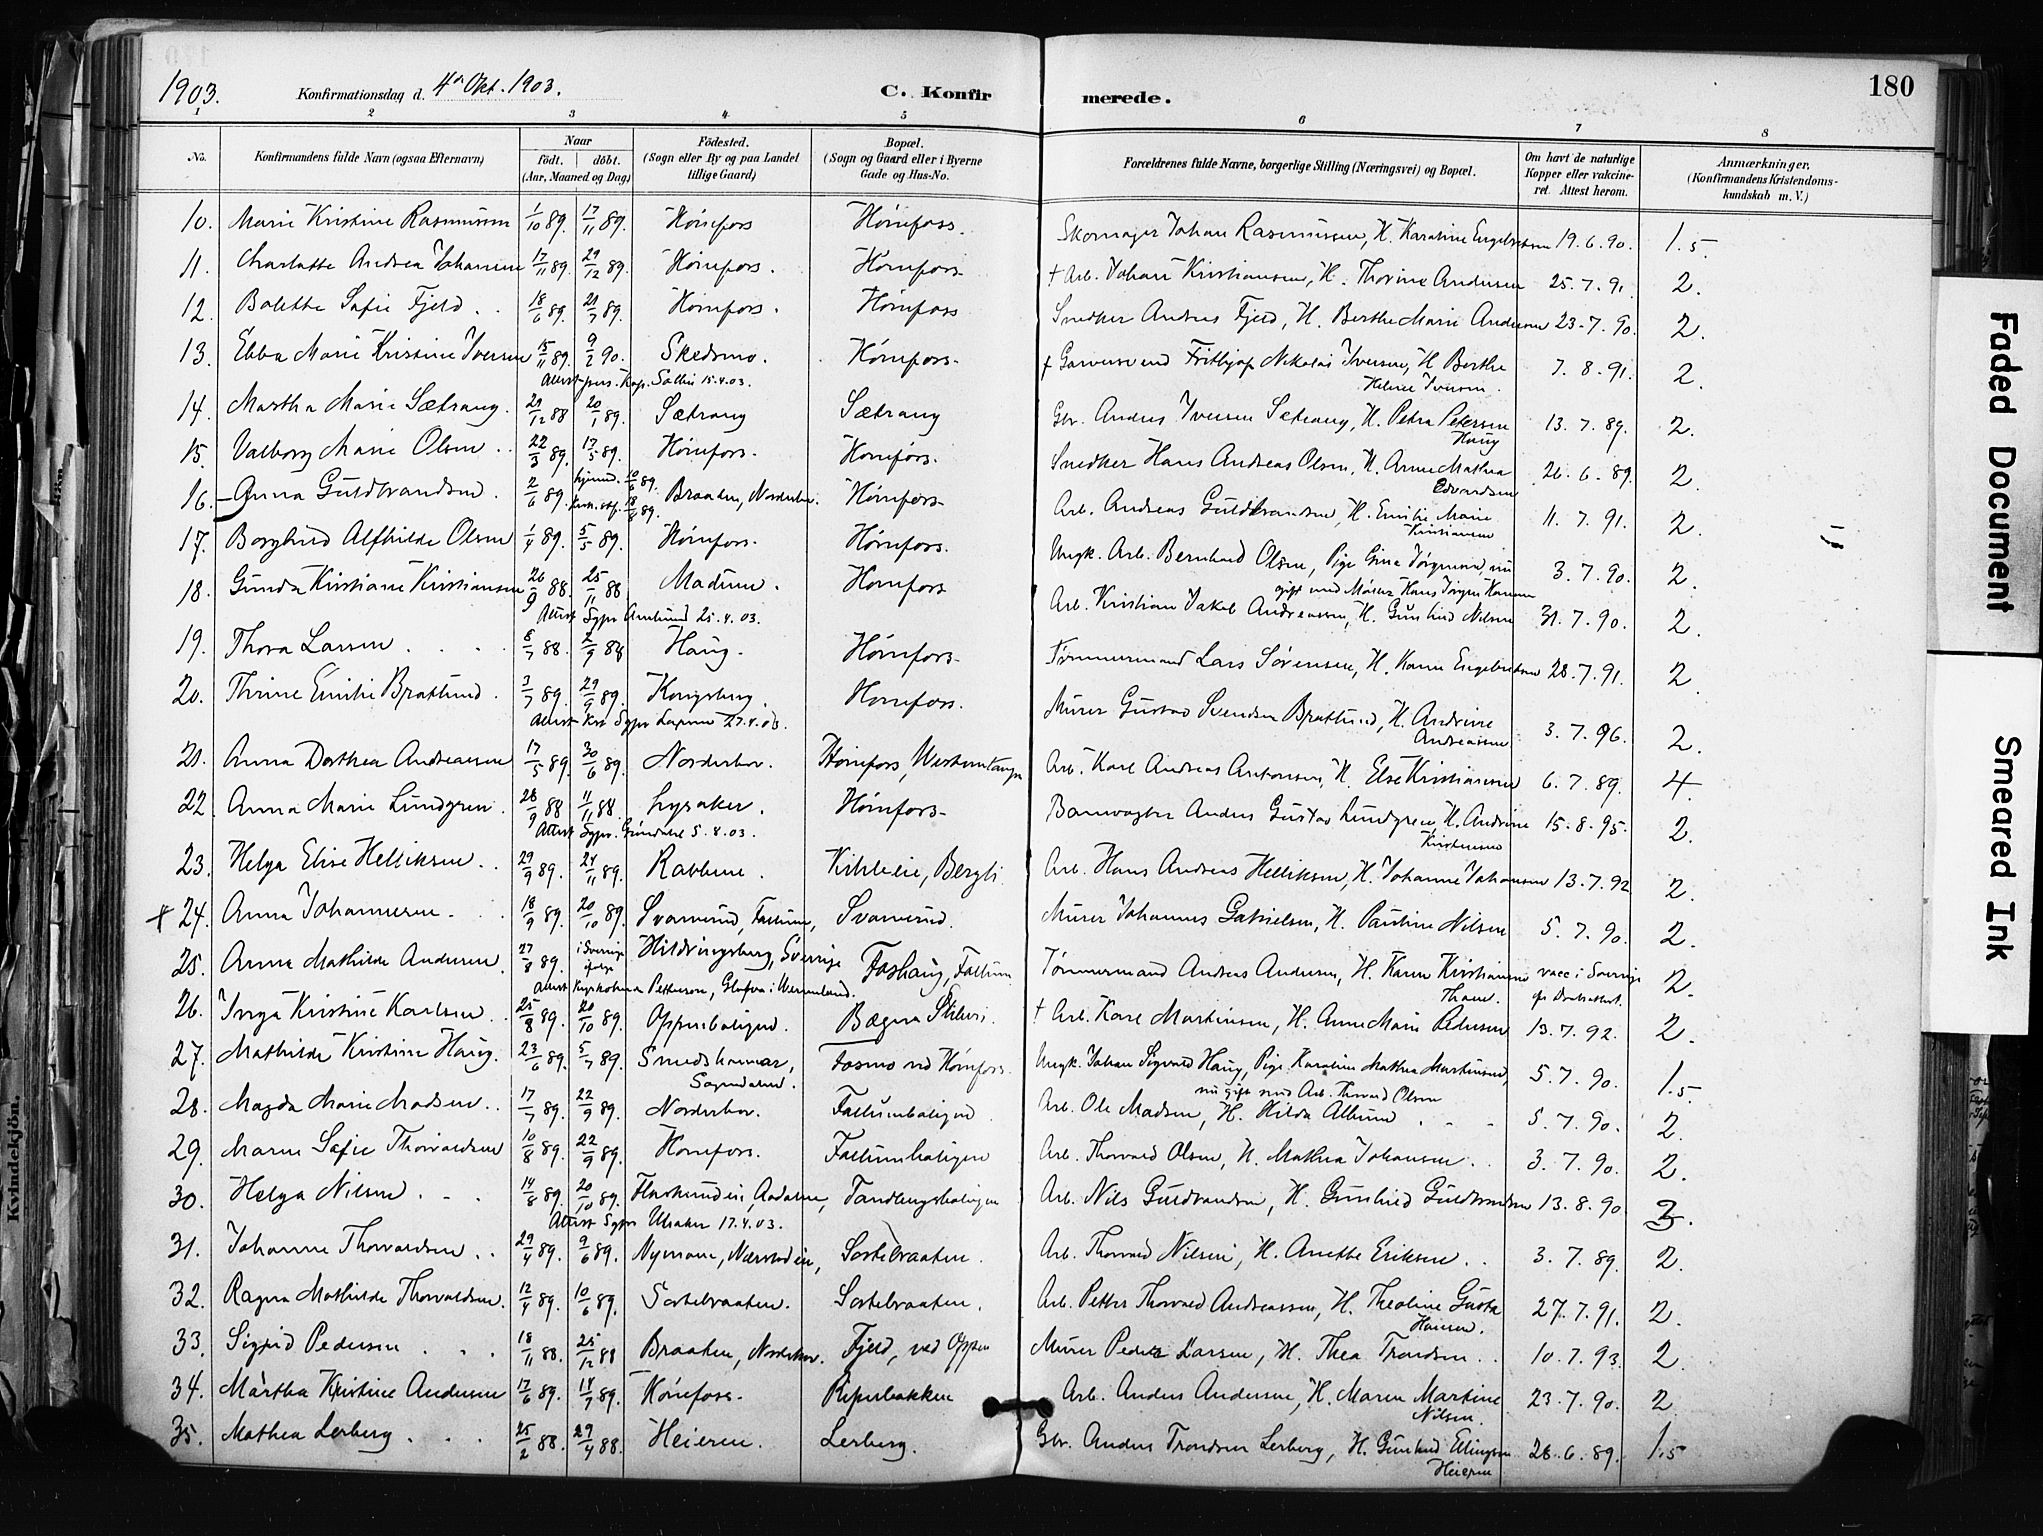 1903. Konfirmationsdag d. 4de Okt. 1903. C. Konfir merede. 180
1 2 3 4 5 6 7 8
No. Konfirmandens fulde Navn (ogsaa Efternavn) Naar födt. döbt. (Aar, Maaned og Dag) Födested. (Sogn eller By og paa Landet tillige Gaard) Bopæl. (Sogn og Gaard eller i Byerne Gade og Hus-No. Forældrenes fulde Navne, borgerlige Stilling (Næringsvei) og Bopæl. Om havt de naturlige Kopper eller vakcineret. Attest herom. Anmærkninger. (Konfirmandens Kristendomskundskab m. V.)
10. Marie Kristine Rasmussen 1/10 89. 17/11 89. Hønefoss Hønefoss. Skomager Johan Rasmussen, H. Karoline Engebretsen 19.6.90. 1.5.
11. Charlotte Andrea Johansen 17/11 89. 29/12 89. Hønefoss. Hønefoss. † Arb. Johan Kristiansen, H. Thorine Andersen 25.7.91. 2.
12. Bolette Sofie Fjeld 18/6 89. 21/7 89. Hønefoss. Hønefoss Snedker Andreas Fjeld, H. Berthe Marie Andersen 23.7.90. 2.
13. Ebba Marie Kristine Iversen 15/11 89. 9/2 90. Skedsmo. Hønefoss. † Garversvend Frithjof Nikolai Iversen, H. Berthe Helene Iversen. 7.8.91. 2.
Attest pers. Kap. Sollie 15.4.03.
14. Martha Marie Sætrang. 21/12 88 20/1 89. Sætrang Sætrang Gbr. Anders Iversen Sætrang, H. Petra Petersen Haug 13.7.89. 2.
15. Valborg Marie Olsen 22/3 89. 17/5 89. Hønefoss. Hønefoss. Snedker Hans Andreas Olsen, H. Anne Mathea Edvardsen 26.6.89. 2.
16. Anna Guldbrandsen. 2/6 89. hjemd. 10/6 89. Kirk. stf. 18/8 89. Braaten, Norderhov. Hønefoss. Arb. Andreas Guldbrandsen, H. Emilie Marie Kristiansen 11.7.91. 2.
17. Borghild Alfhilde Olsen 1/4 89. 5/5 89. Hønefoss. Hønefoss. Ungk. Arb. Bernhard Olsen, Pige Gina Jørgensen, nu gift med Murer Hans Jørgen Hansen 3.7.90. 2.
18. Gunda Kristiane Kristiansen 26/9 88. 25/11 88 Modum. Hønefoss Arb. Kristian Jakob Andreassen, H. Gunhild Nilsen 31.7.90. 2.
Attest Sgpr. Amlund 25.4.03.
19. Thora Larsen 8/7 88. 2/9 88 Haug. Hønefoss. Tømmermand Lars Sørensen, H. Karen Engebretsen 28.7.91. 2.
20. Thrine Emilie Bratlund. 3/7 89. 29/9 89. Kongsberg. Hønefoss. Murer Gustav Svendsen Bratlund, H. Andrine Andreassen 3.7.96. 2.
Attest Sgpr. 27.4.03.
21. Anna Dorthea Andreassen 17/5 89. 30/6 89. Norderhov. Hønefoss, Westerntangen Arb. Karl Andreas Antonsen, H. Else Kristiansen 6.7.89. 4.
22. Anna Marie Lundgren 28/9 88 11/11 88. Lysaker. Hønefoss. Banevogter Anders Gustav Lundgren, H. Andrine Kristensen 15.8.95. 2.
Attest Sgpr. Grøndahl 5.8.03.
23. Helga Elise Helliksen 29/9 89. 24/11 89. Rabbene. Kihleeie, Bergli Arb. Hans Andreas Helliksen, H. Johanne Johansen 13.7.92 2.
24. Anna Johannesen 18/9 89. 20/10 89. Svarverud, Follum, Svarverud. Murer Johannes Gabrielsen, H. Pauline Nilsen 5.7.90. 2.
25. Anna Mathilde Andersen. 27/8 89. i Sverige Hildringsberg, Sverige Foshaug, Follum Tømmermand Andreas Andersen, H. Karen Kristiansen Thoen. vacc. i Sverige 2.
Attest Kyrkoherre Petterson, Glafva i Wermland.
26. Inga Kristine Karlsen 25/8 89. 20/10 89. Oppenboligen. Bægna Sliberi. † Arb. Karl Martinsen, H. Anne Marie Pedersen 13.7.92. 2.
27. Mathilde Kristine Haug. 23/6 89. 5/7 89. Smedshammer, Sognedalen. Fosmo ved Hønefoss. Ungk. Johan Sigvald Haug, Pige Karoline Mathea Martinsen, nu gift med Arb. Thorvald Olsen 5.7.90. 1.5.
28. Magda Marie Madsen. 17/7 89. 22/9 89. Norderhov. Follumboligen Arb. Ole Madsen, H. Hilda Allund 5.7.90. 2.
29. Maren Sofie Thorvaldsen 10/8 89. 22/9 89. Hønefoss. Follumboligen Arb. Thorvald Olsen, H. Mathea Johansen 3.7.90. 2.
30. Helga Nilsen 14/8 89. 20/10 89. Flaskerudei, Aadalen, Tandbergsboligen Arb. Nils Guldbrandsen, H. Gunhild Guldbrandsen 13.8.90. 3.
Attest Sgpr. Ulsaker 17.4.03.
31. Johanne Thorvaldsen 29/4 89. 9/6 89. Nymoen, Nærstad eie, Sortebraaten. Arb. Thorvald Nilsen, H. Anette Eriksen 3.7.89. 2.
32. Ragna Mathilde Thorvaldsen. 12/4 89. 10/6 89. Sortebraaten. Sortebraaten. Arb. Petter Thorvald Andreassen, H. Theoline Gusta Hansen. 27.7.91. 2.
33. Sigrid Pedersen 18/11 88. 25/12 88 Braaten, Norderhov. Fjeld, ved Oppen Murer Peder Larsen, H. Thea Trondsen 10.7.93. 2.
34. Martha Kristine Andersen 17/6 89. 14/7 89. Hønefoss. Ripenbakken Arb. Anders Andersen, H. Maren Martine Nilsen. 23.7.90. 2
35. Mathea Lerberg 25/2 88. 29/4 88. Heieren. Lerberg. Gbr. Anders Trondsen Lerberg, H. Gunhild Ellingsen Heieren 28.6.89. 1.5
Kvindekjön.
Faded Document
Smeared Ink